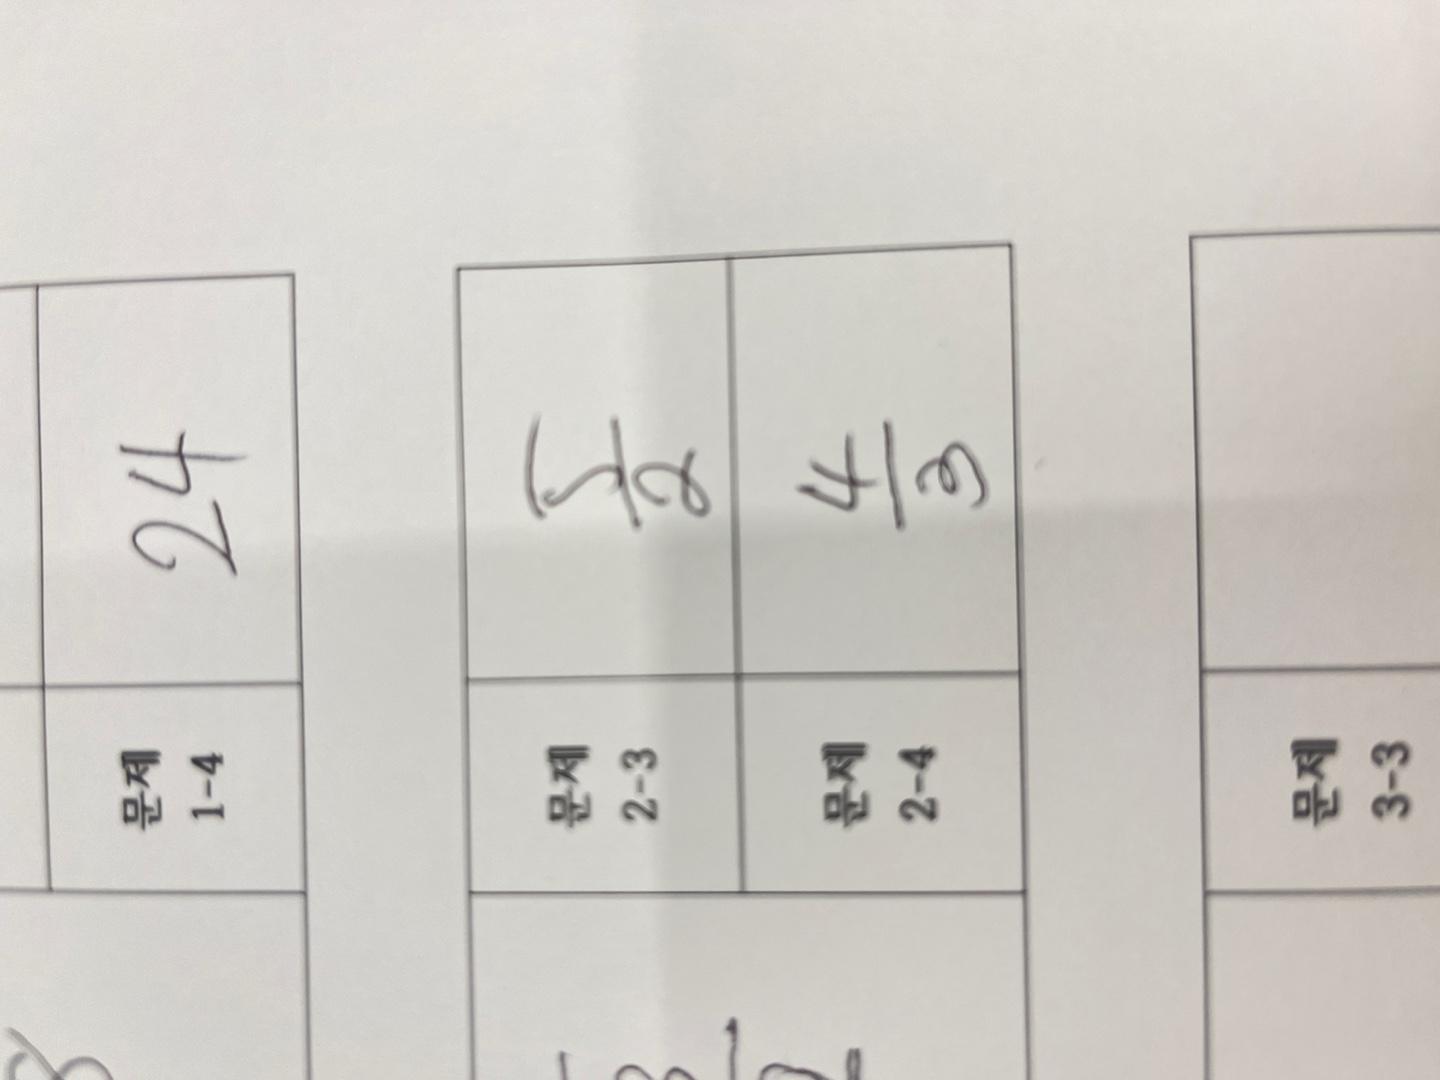 문제
1-4
24
문제
2-3
5/2
문제
2-4
4/3
문제
3-3